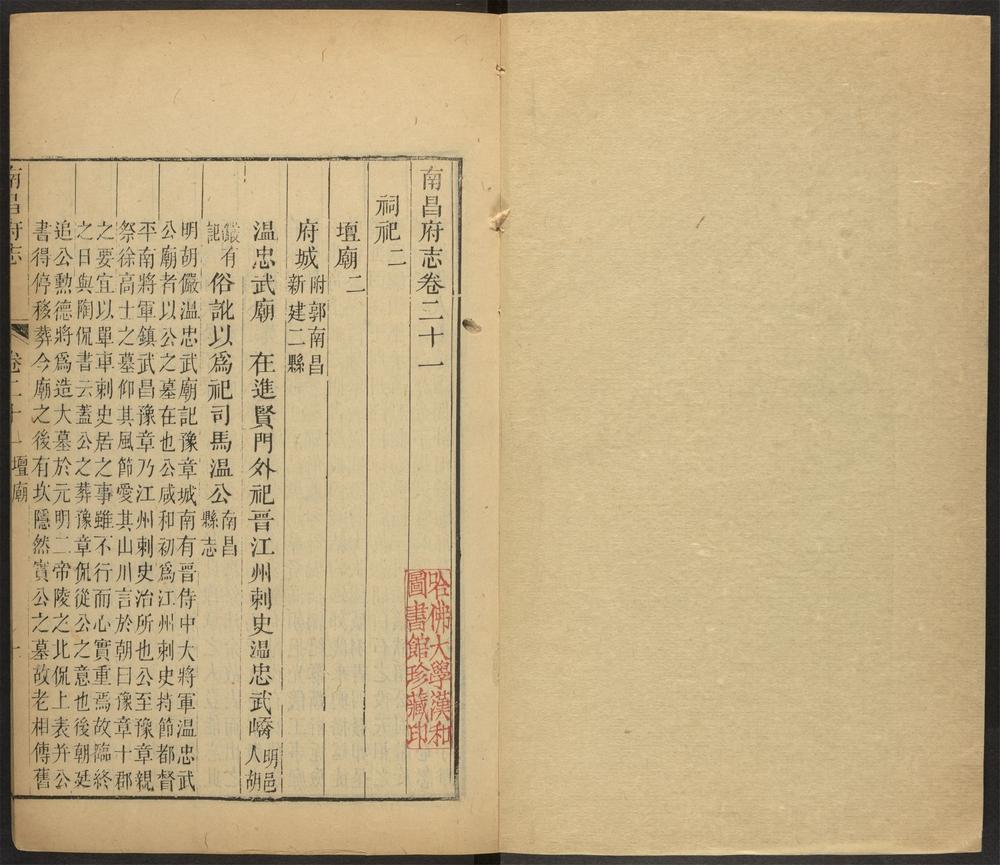 南昌府志卷二十一
祠祀二
壇廟二
府城附郭南昌
新建二縣
温忠武廟 在進賢門外祀晉江州刺史温忠武嶠明邑
人胡
儼有
記俗訛以為祀司馬温公南昌
縣志
明胡儼温忠武廟記豫章城南有晉侍中大將軍温忠武
公廟者以公之墓在也公咸和初爲江州刺史持節都督
平南將軍鎮武昌豫章乃江州刺史治所也公至豫章親
祭徐高士之墓仰其風節愛其山川言於朝曰豫章十郡
之要宜以單車刺史居之事雖不行而心實重焉故臨終
之日與陶侃書云蓋公之葬豫章侃從公之意也後朝廷
追公勲德將爲造大墓於元明二帝陵之北侃上表并公
書得停移葬今廟之後有坎隱然實公之墓故老相傳舊
南昌府志
卷二十一壇廟
一
哈佛大學漢和
圖書館珍藏印